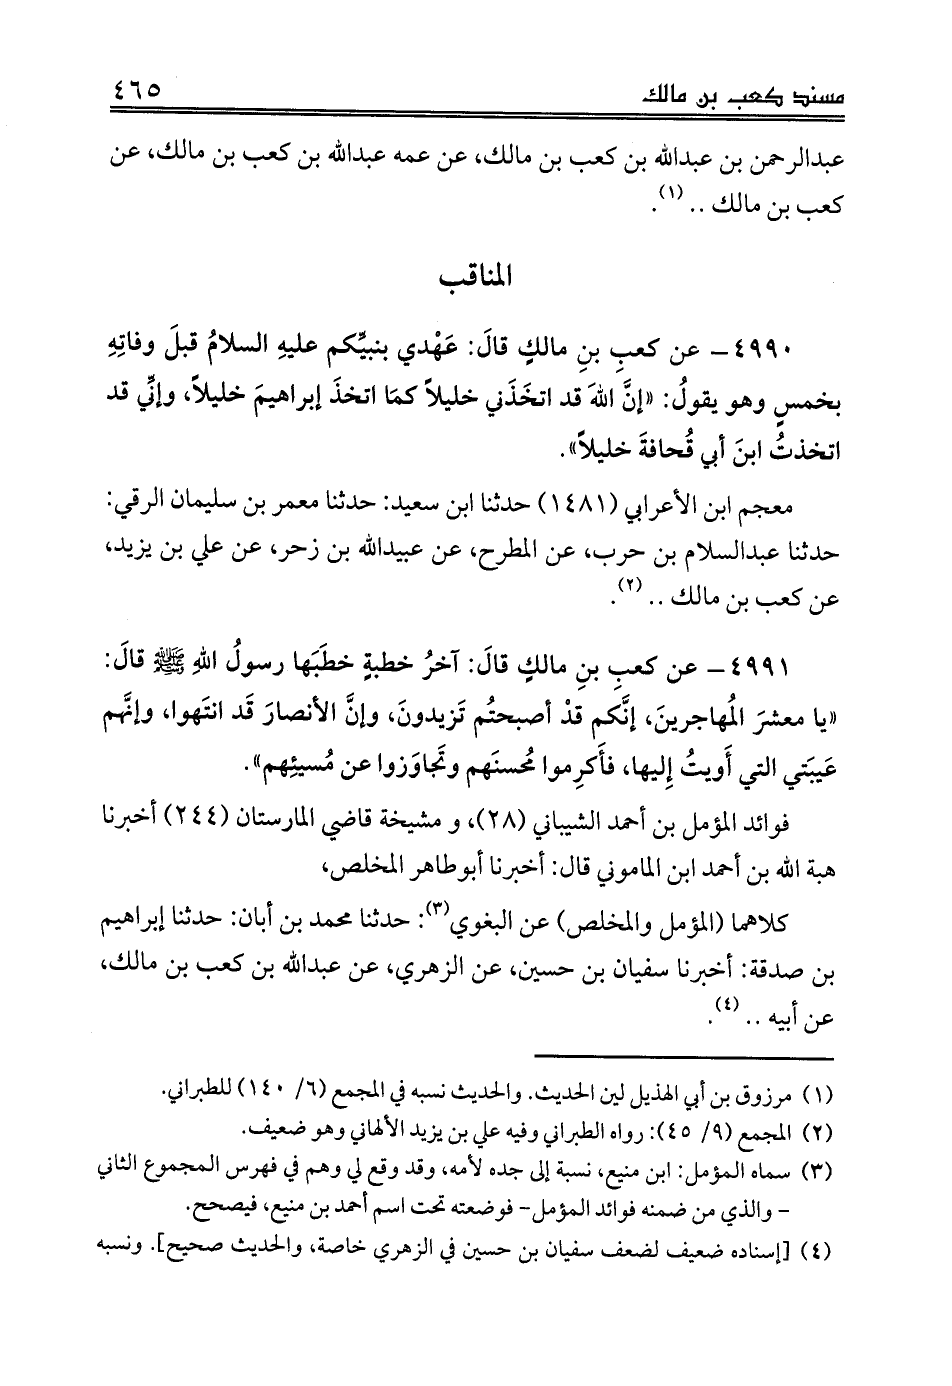 مسند كعب بن مالك ٤٦٥
عبدالرحمن بن عبدالله بن كعب بن مالك، عن عمه عبدالله بن كعب بن مالك، عن
كعب بن مالك .. (١).
المناقب
٤٩٩٠ – عن كعبِ بنِ مالكٍ قالَ: عَهْدي بنبيِّكم عليهِ السلامُ قبلَ وفاتِهِ
بخمسٍ وهو يقولُ: «إنَّ اللهَ قد اتخَذَني خليلاً كمَا اتخذَ إبراهيمَ خليلاً، وإنِّي قد
اتخذتُ ابنَ أبي قُحافةَ خليلاً».
معجم ابن الأعرابي (١٤٨١) حدثنا ابن سعيد: حدثنا معمر بن سليمان الرقي:
حدثنا عبدالسلام بن حرب، عن المطرح، عن عبيدالله بن زحر، عن علي بن يزيد،
عن كعب بن مالك .. (٢).
٤٩٩١ – عن كعبِ بنِ مالكٍ قالَ: آخرُ خطبةٍ خطَبَها رسولُ اللهِ ﷺ قالَ:
«يا معشرَ المُهاجرينَ، إنَّكم قدْ أصبحتُم تَزيدونَ، وإنَّ الأنصارَ قَد انتهوا، وإنَّهم
عَيبَتي التي أَويتُ إليها، فأَكرِموا مُحسنَهم وتَجاوَزوا عن مُسيئِهم».
فوائد المؤمل بن أحمد الشيباني (٢٨)، و مشيخة قاضي المارستان (٢٤٤) أخبرنا
هبة الله بن أحمد ابن الماموني قال: أخبرنا أبوطاهر المخلص،
كلاهما (المؤمل والمخلص) عن البغوي(٣): حدثنا محمد بن أبان: حدثنا إبراهيم
بن صدقة: أخبرنا سفيان بن حسين، عن الزهري، عن عبدالله بن كعب بن مالك،
عن أبيه .. (٤).
(١) مرزوق بن أبي الهذيل لين الحديث. والحديث نسبه في المجمع (٦/ ١٤٠) للطبراني.
(٢) المجمع (٩/ ٤٥): رواه الطبراني وفيه علي بن يزيد الألهاني وهو ضعيف.
(٣) سماه المؤمل: ابن منيع، نسبة إلى جده لأمه، وقد وقع لي وهم في فهرس المجموع الثاني
– والذي من ضمنه فوائد المؤمل– فوضعته تحت اسم أحمد بن منيع، فيصحح.
(٤) [إسناده ضعيف لضعف سفيان بن حسين في الزهري خاصة، والحديث صحيح]. ونسبه